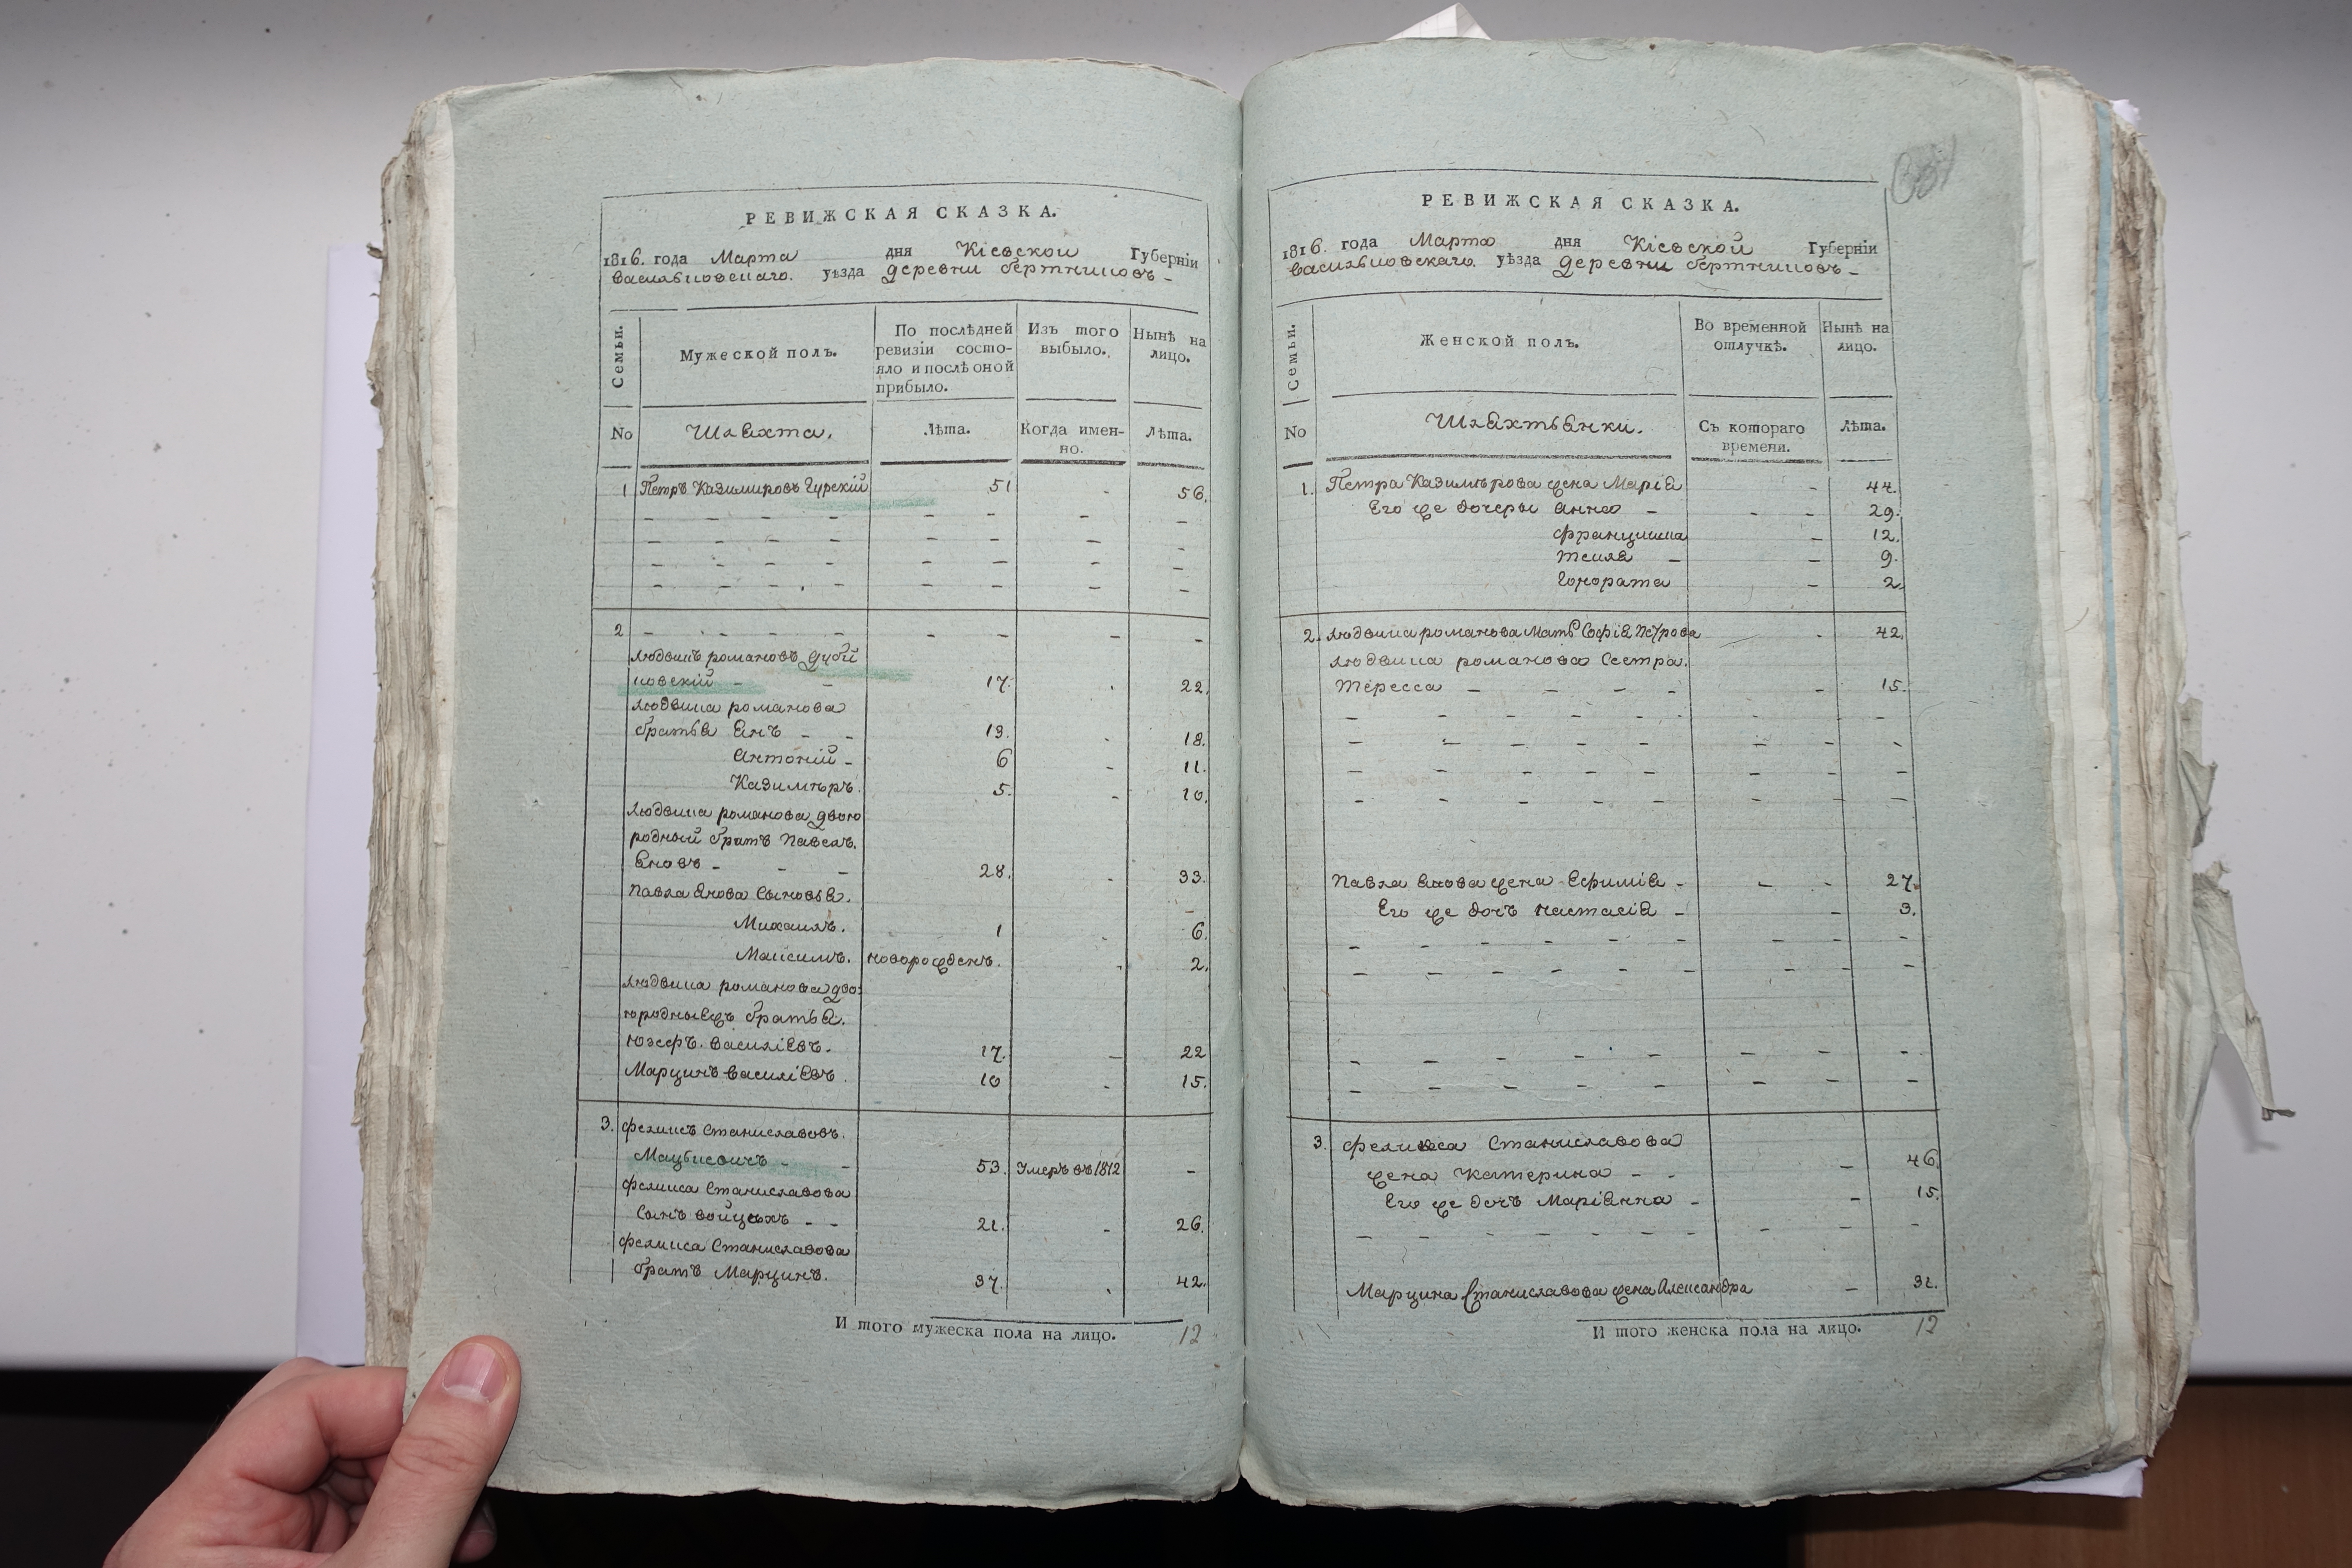 РЕВИЖСКАЯ СКАЗКА.
1816. года Марта дня Кіевской Губерніи
Васильковскаго. уѣзда деревни бертниковъ –
Семьи.
Мужеской полъ.
По послѣдней ревизіи состо-
яло и послѣ оной
прибыло.
Изъ того
выбыло.
Нынѣ на
лицо.
No
Шляхта.
Лѣта.
Когда имен-
но.
Лѣта.
1 Петръ Казимировъ Гурскій 51 - 56.
2
Людвикъ романовъ дуби
ковскій 17. 22.
Людвика романова
братья Янъ 13. 18.
Антоній 6 11.
Казимѣръ. 5. 10.
Людвика романова двою
родный братъ Павелъ.
Яновъ 28. 33.
Павла Янова Сыновья.
Михаилъ. 1 6.
Максимъ. новорожденъ. 2.
Людвика романова дво:
юродныежъ братья.
Юзефъ. Василіевъ. 17. 22
Марцинъ Василіевъ. 10 15.
3. Феликсъ Станиславовъ.
Мацкевичъ 53. Умеръ въ 1812 -
Феликса Станиславова
Сынъ Войцѣхъ 21. 26.
Феликса Станиславова
братъ Марцинъ. 37. 42.
И того мужеска пола на лицо. 12
РЕВИЖСКАЯ СКАЗКА.
1816. года Марта дня Кіевской Губерніи
Васильковскаго. уѣзда деревни бертниковъ –
Семьи.
Женской полъ.
Во временной
отлучкѣ.
Нынѣ на
лицо.
No
Шляхтянки.
Съ котораго
времени.
Лѣта.
1. Петра Казимѣрова жена Марія 44.
Его же дочеры Анна 29.
Францишка 12.
Текля 9.
Гонората 2.
2. Людвика романова Мать Софія Петрова 42.
Людвика романова Сестра.
Тересса 15.
Павла Янова жена Ефимія 27.
Его же дочъ Настасія 3.
3. Феликса Станиславова
жена Катерина 46.
Его же дочъ Маріянна 15.
Марцина Станиславова жена Александра 31.
И того женска пола на лицо. 12